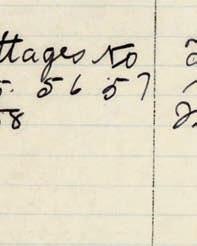 ttages No 2
5. 56 57
58 2